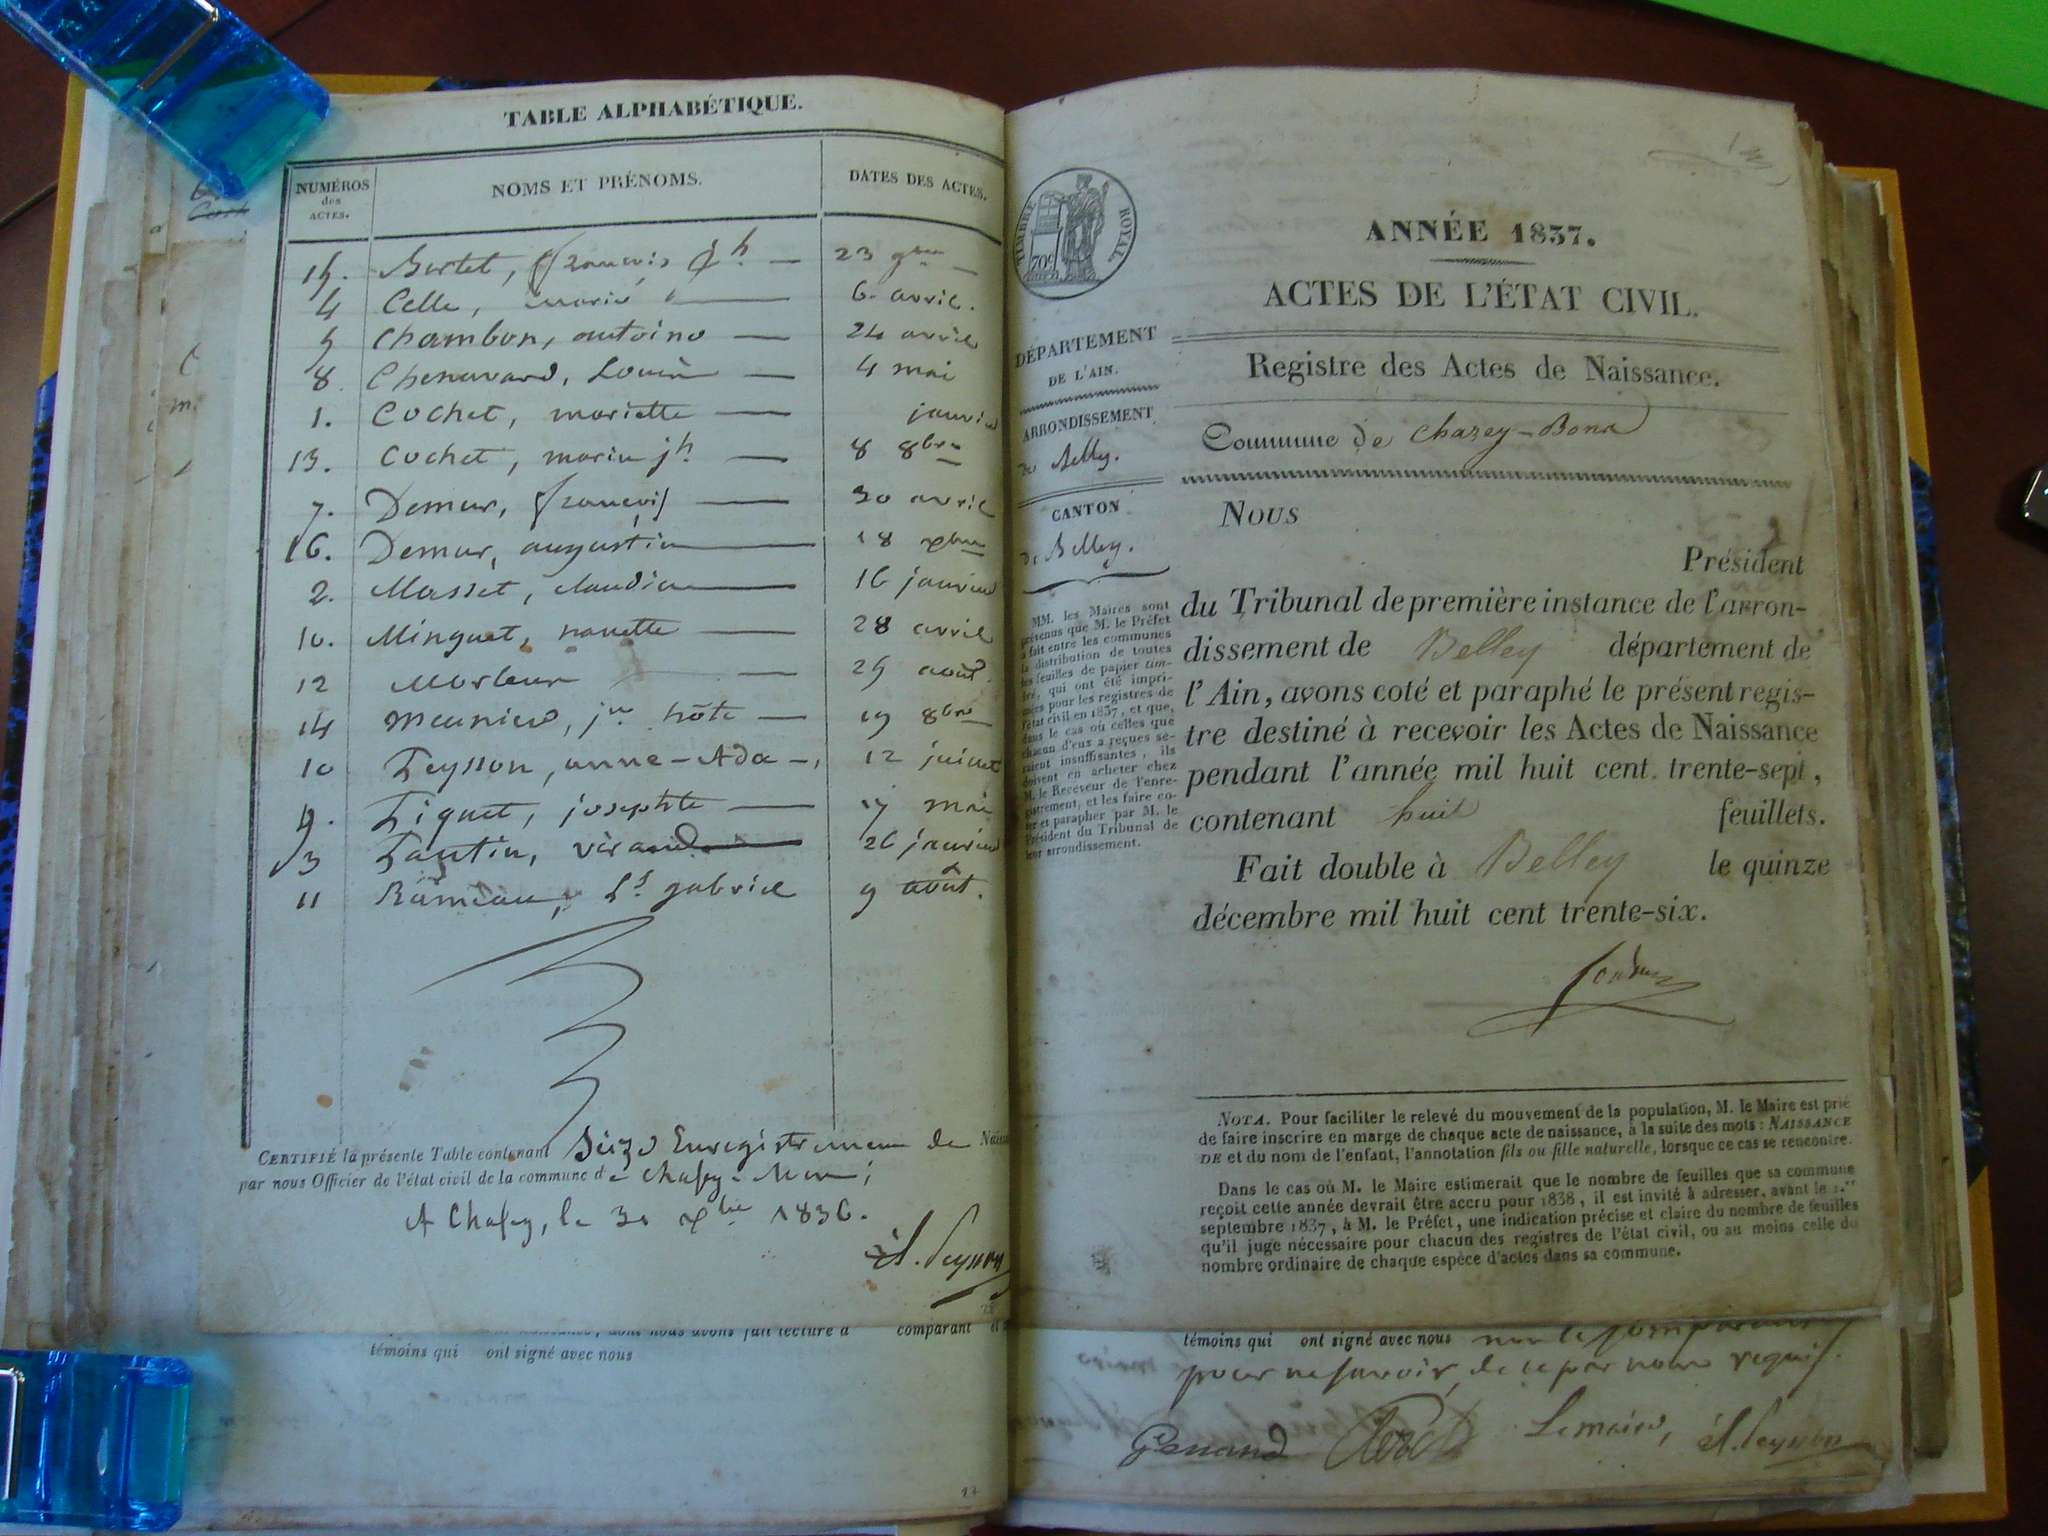 TABLE ALPHABÉTIQUE.
NUMÉROS des ACTES. NOMS ET PRÉNOMS. DATES DES ACTES.
15. Bertet, françois jh 23 9bre
4 Celle, marie 6 avril.
5 Chambon, antoine 24 avril
8. Chenavard, Louise 4 mai
1. Cochet, mariette janvier
13. Cochet, marie jh 8 8bre
7. Demur, françois 30 avril
16. Demur, augustin 18 xbre
2. Masset, claudine 16 janvier
10. Minguet, nanette 28 avril
12 25 août.
14 meunier, 19 8bre
10 Peysson, anne-Ada 12 juillet
9. Piguet, josephte 17 mai
3 Pantin, 26 janvier
11 Rameau, Ls gabriel 9 août.
CERTIFIÉ la présente Table contenant Seize Enregistremens de
par nous Officier de l'état civil de la commune de Chasey-
A Chasey, le 31 xbre 1836.
Peysson
TIMBRE ROYAL
70c
DÉPARTEMENT
DE L'AIN.
ARRONDISSEMENT
de Belley.
CANTON
de Belley.
MM. les Maires sont
prévenus que M. le Préfet
a fait entre les communes
la distribution de toutes
les feuilles de papier tim-
bré, qui ont été impri-
mées pour les registres de
l'état civil en 1837, et que,
dans le cas où celles que
chacun d'eux a reçues se-
raient insuffisantes, ils
doivent en acheter chez
M. le Receveur de l'enre-
gistrement, et les faire co-
ter et parapher par M. le
Président du Tribunal de
leur arrondissement.
ANNÉE 1837.
ACTES DE L'ÉTAT CIVIL.
Registre des Actes de Naissance.
Commune de Chazey-Bons
Nous
Président
du Tribunal de première instance de l'arron-
dissement de Belley département de
l'Ain, avons coté et paraphé le présent regis-
tre destiné à recevoir les Actes de Naissance
pendant l'année mil huit cent trente-sept,
contenant huit feuillets.
Fait double à Belley le quinze
décembre mil huit cent trente-six.
NOTA. Pour faciliter le relevé du mouvement de la population, M. le Maire est prié
de faire inscrire en marge de chaque acte de naissance, à la suite des mots : NAISSANCE
DE et du nom de l'enfant, l'annotation fils ou fille naturelle, lorsque ce cas se rencontre.
Dans le cas où M. le Maire estimerait que le nombre de feuilles que sa commune
reçoit cette année devrait être accru pour 1838, il est invité à adresser, avant le 1.er
septembre 1837, à M. le Préfet, une indication précise et claire du nombre de feuilles
qu'il juge nécessaire pour chacun des registres de l'état civil, ou au moins celle du
nombre ordinaire de chaque espèce d'actes dans sa commune.
dont nous avons fait lecture à comparant et
témoins qui ont signé avec nous
témoins qui ont signé avec nous non le comparant
pour ne savoir, de ce par nous requis.
Penand Le maire, Peysson